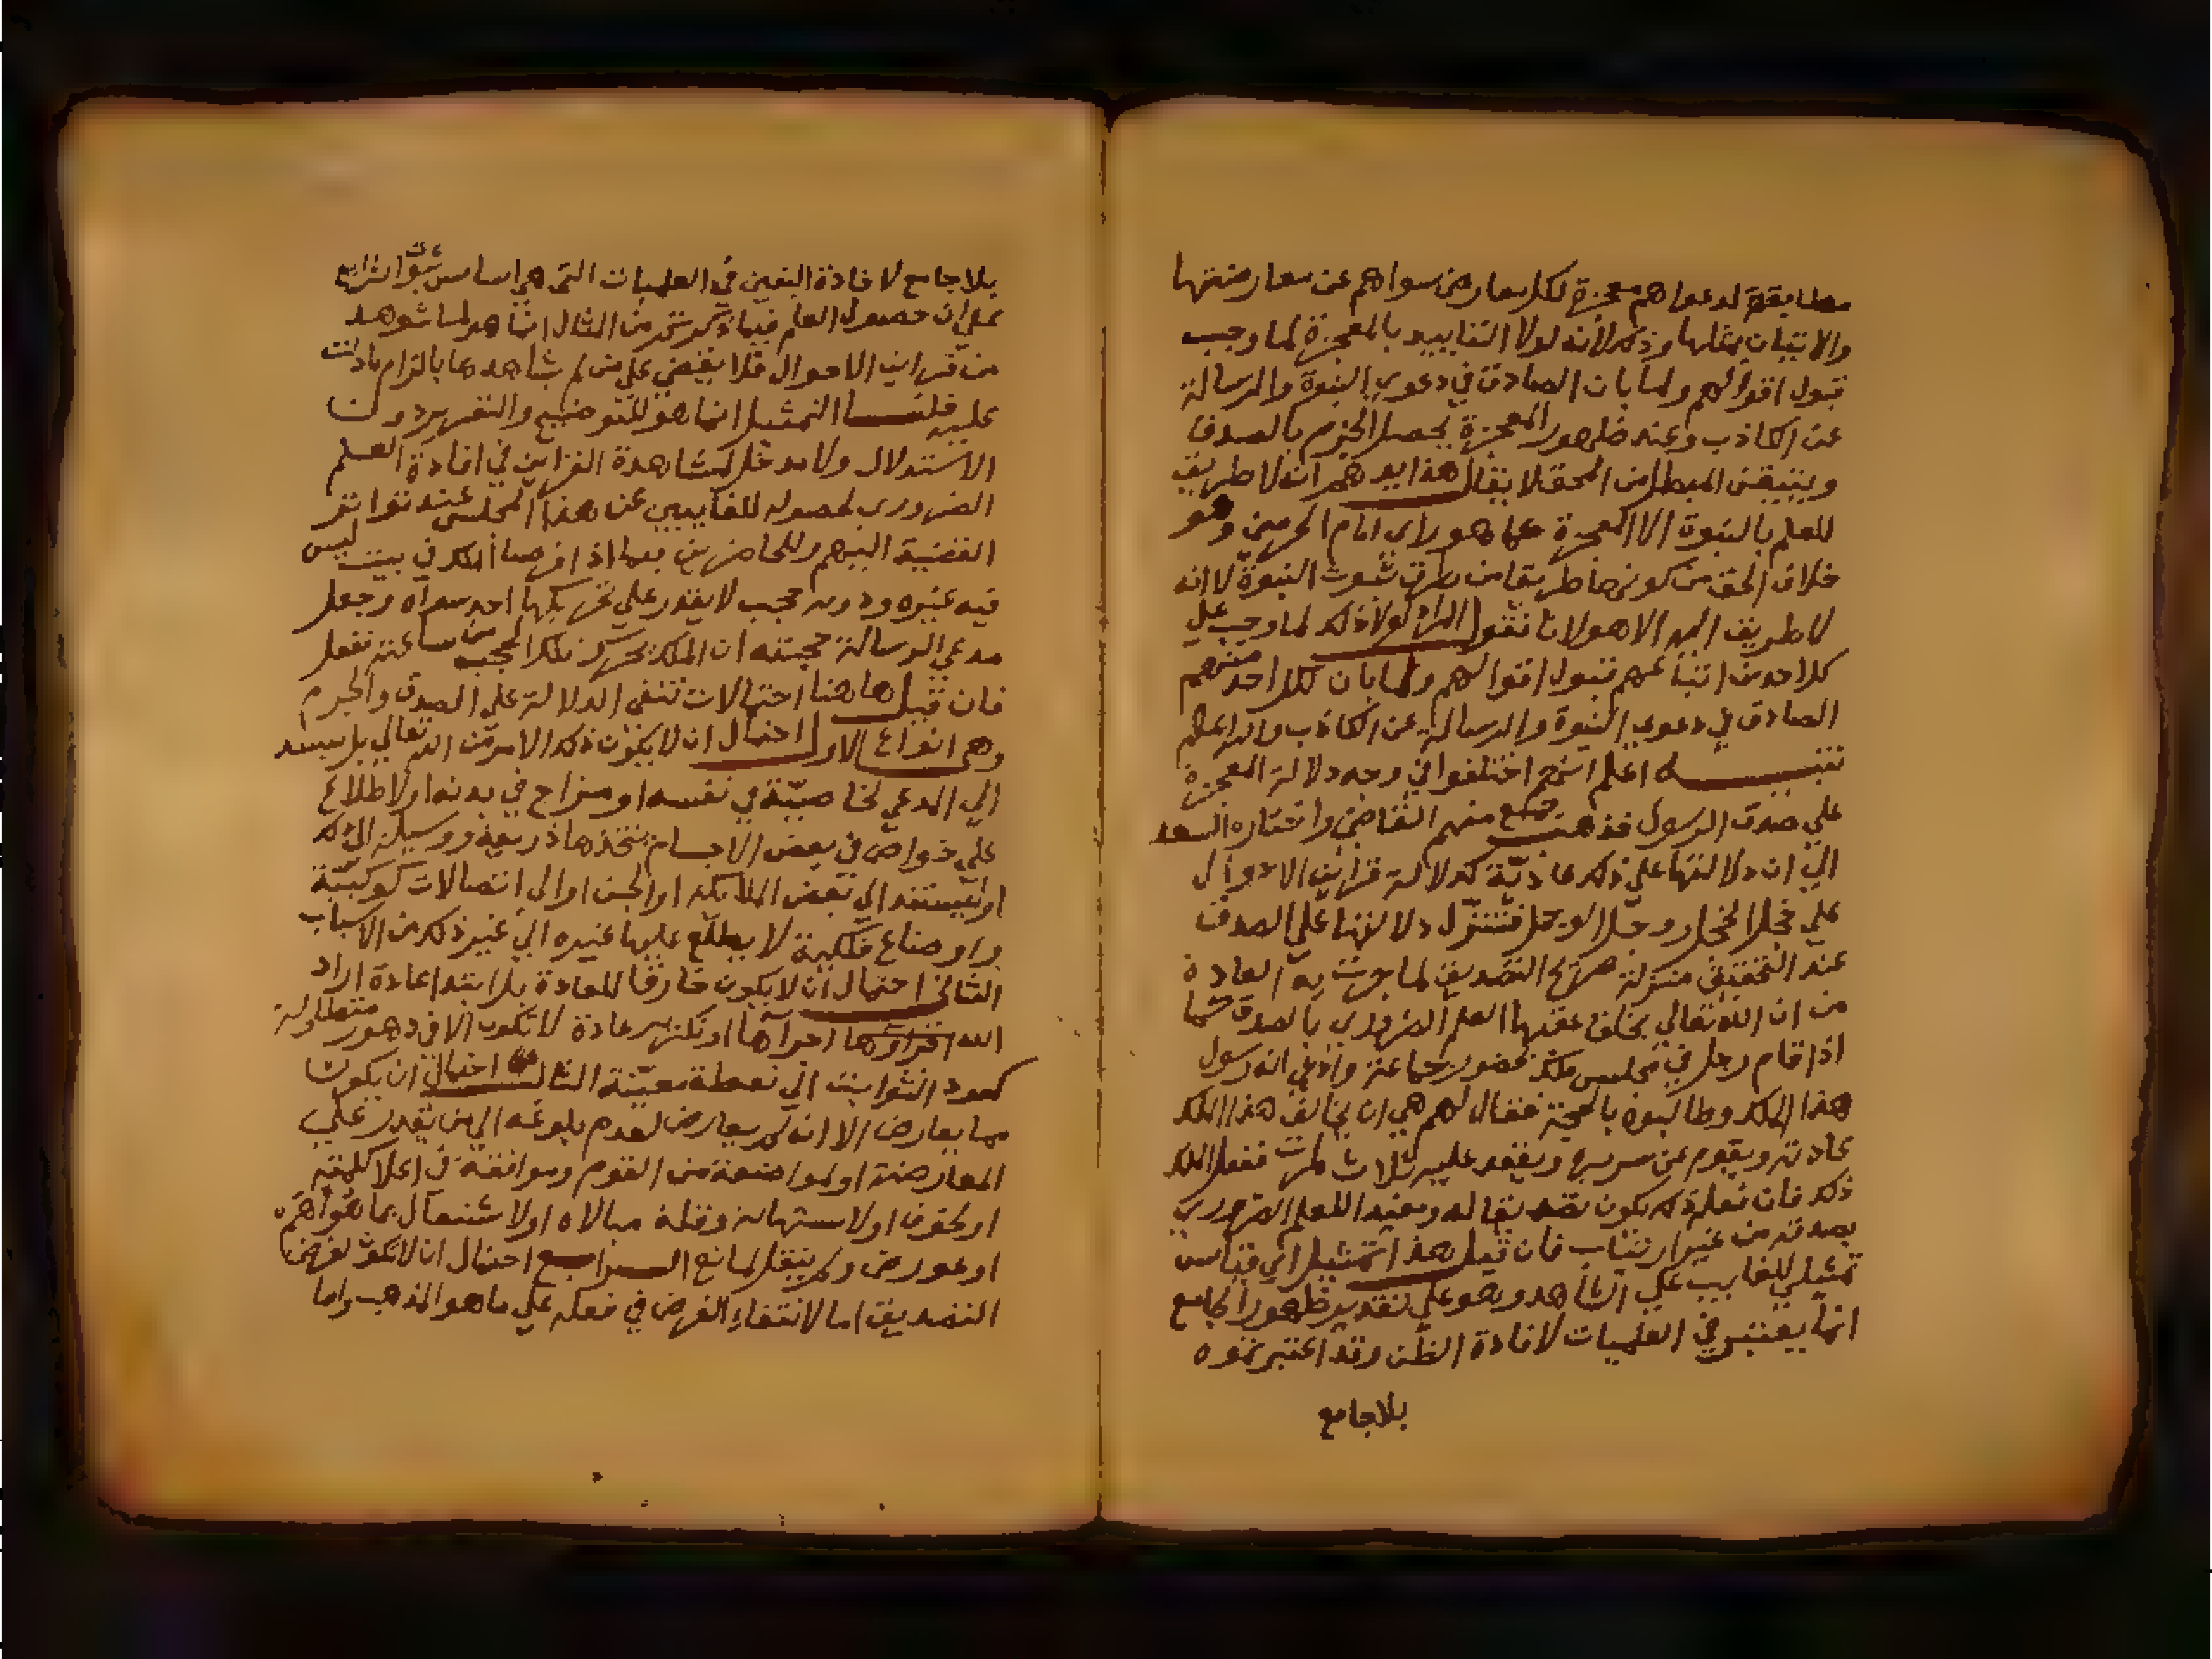 مطابقة لدعواهم معجزة لكل معارض سواهم عن معارضتها
والاتيان بمثلها وذلك لأنه لولا التاييد بالمعجزة لما وجب
قبول اقوالهم ولما بان الصادق في دعوي النبوة والرسالة
عن الكاذب وعند ظهور المعجزة يحصل الجزم بالصدق
ويتيقن المبطل من المحق لا يقال هذا يوهم ان لا طريق
للعلم بالنبوة الا المعجزة كما هو راى امام الحرمين وهو
خلاف الحق من كونها طريقا من طرق ثبوت النبوة لا انه
لا طريق اليه الا هو لانا نقول المراد لولا ذلك لما وجب علي
كل احد من اتباعهم قبول اقوالهم ولما بان لكل احد منهم
الصادق في دعوي النبوة والرسالة عن الكاذب والله اعلم
تنبيه اعلم انهم اختلفوا في وجه دلالة المعجزة
علي صدق الرسول فذهب جمع منهم القاضي واختاره السعد
الي ان دلالتها علي ذلك عادية كدلالة قراين الاحوال
علي خجل الخجل ووجل الوجل فتنزل دلالتها علي الصدق
عند التحقيق منزلة صريح التصديق لما جرت به العادة
من ان الله تعالي يخلق عقبها العلم الضروري بالصدق كما
اذا قام رجل في مجلس ملك بحضور جماعة وادعي انه رسول
هذا الملك وطالبوه بالحجة فقال لهم هي ان يخالف هذا الملك
عادته ويقوم عن سريره ويقعد عليه ثلاث مرات ففعل الملك
ذلك فان فعله ذلك يكون تصديقا له ومفيدا للعلم الضروري
بصدقه من غير ارتياب فان قيل هذا تمثيل اي قياس
تمثيلي للغايب علي الشاهد وهو علي تقدير ظهور الجامع
انما يعتبر في العلميات لافادة الظن وقد اعتبرتموه
بلا جامع
بلا جامع لافادة اليقين في العلميات التي هي اساس ثبوت الشرايع
علي ان حصول العلم فيما ذكرتم من المثال انما هو لما شوهد
من قراين الاحوال فلا يقضي علي من لم يشاهدها بالتزام ما دلت
عليه قلنا التمثيل انما هو للتوضيح والتقرير دون
الاستدلال ولا مدخل لمشاهدة القراين في افادة العلم
الضروري لحصوله للغايبين عن هذا المجلس عند تواتر
القضية اليهم وللحاضرين بما اذا فرضنا الملك في بيت ليس
فيه غيره ودونه حجب لا يقدر علي تحريكها احد سواه وجعل
مدعي الرسالة حجته ان الملك يحرك تلك الحجب من ساعته ففعل
فان قيل هاهنا احتمالات تنفى الدلالة علي الصدق والجزم
وهي انواع الاول احتمال ان لا يكون ذلك الامر من الله تعالي بل يستند
الي المدعي لخاصية في نفسه او مزاج في بدنه او لاطلاع
علي خواص في بعض الاجسام يتخذها ذريعة ووسيلة الي ذلك
او يستند الي بعض الملايكة او الجن او الى اتصالات كوكبية
واوضاع فلكية لا يطلع عليها غيره الي غير ذلك من الاسباب
الثاني احتمال ان لا يكون خارقا للعادة بل ابتداء عادة اراد
الله اجراها او تكرير عادة لا تكون الا في دهور متطاولة
كعود الثوابت الي نقطة معينة الثالث احتمال ان يكون
مما يعارض الا انه لم يعارض لعدم بلوغه الي من يقدر علي
المعارضة او لمواضعة من القوم وموافقة في اعلا كلمته
او لخوف او لاستهانة وقلة مبالاه او لاشتغال بما هو اهم
او عورض ولم ينقل لمانع الرابع احتمال ان لا يكون لغرض
التصديق اما لانتفاء الغرض في فعله علي ما هو المذهب واما